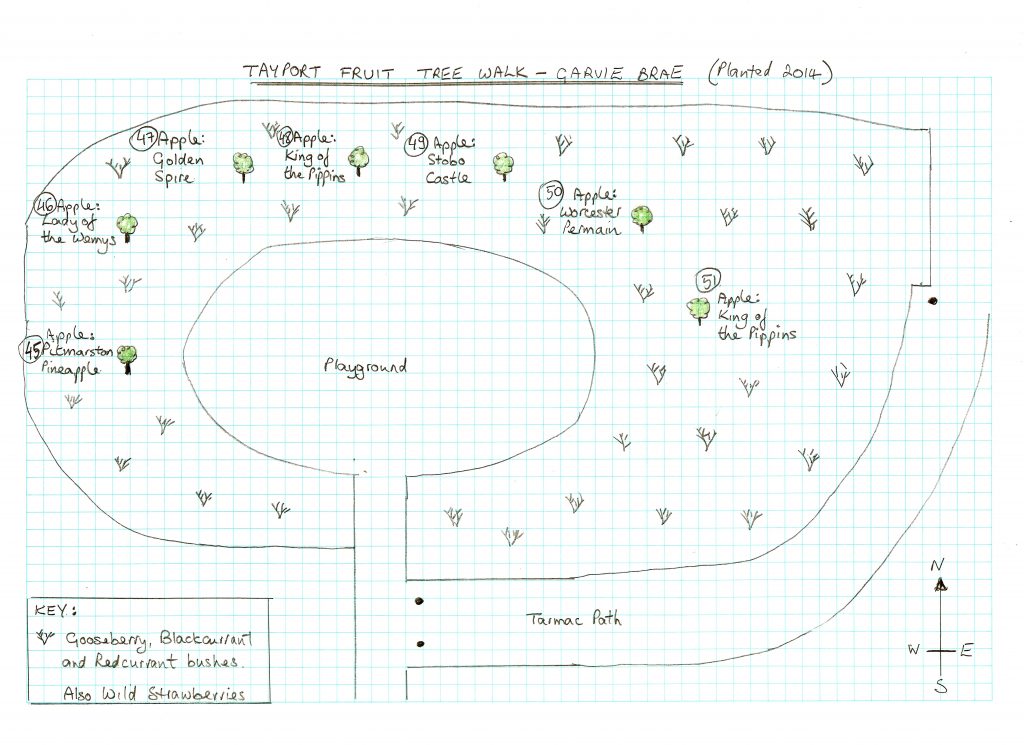 TAYPORT FRUIT TREE WALK – GARVIE BRAE (Planted 2014)
47 Apple:
Golden
Spire
48 Apple:
King of
the Pippins
49 Apple:
Stobo
Castle
50 Apple:
Worcester
Permain
46 Apple:
Lady of
the Wemys
51
Apple:
King of
the Pippins
Apple:
45 Pitmarston
Pineapple
Playground
Tarmac Path
N
W E
S
KEY:
Gooseberry, Blackcurrant
and Redcurrant bushes.
Also Wild Strawberries